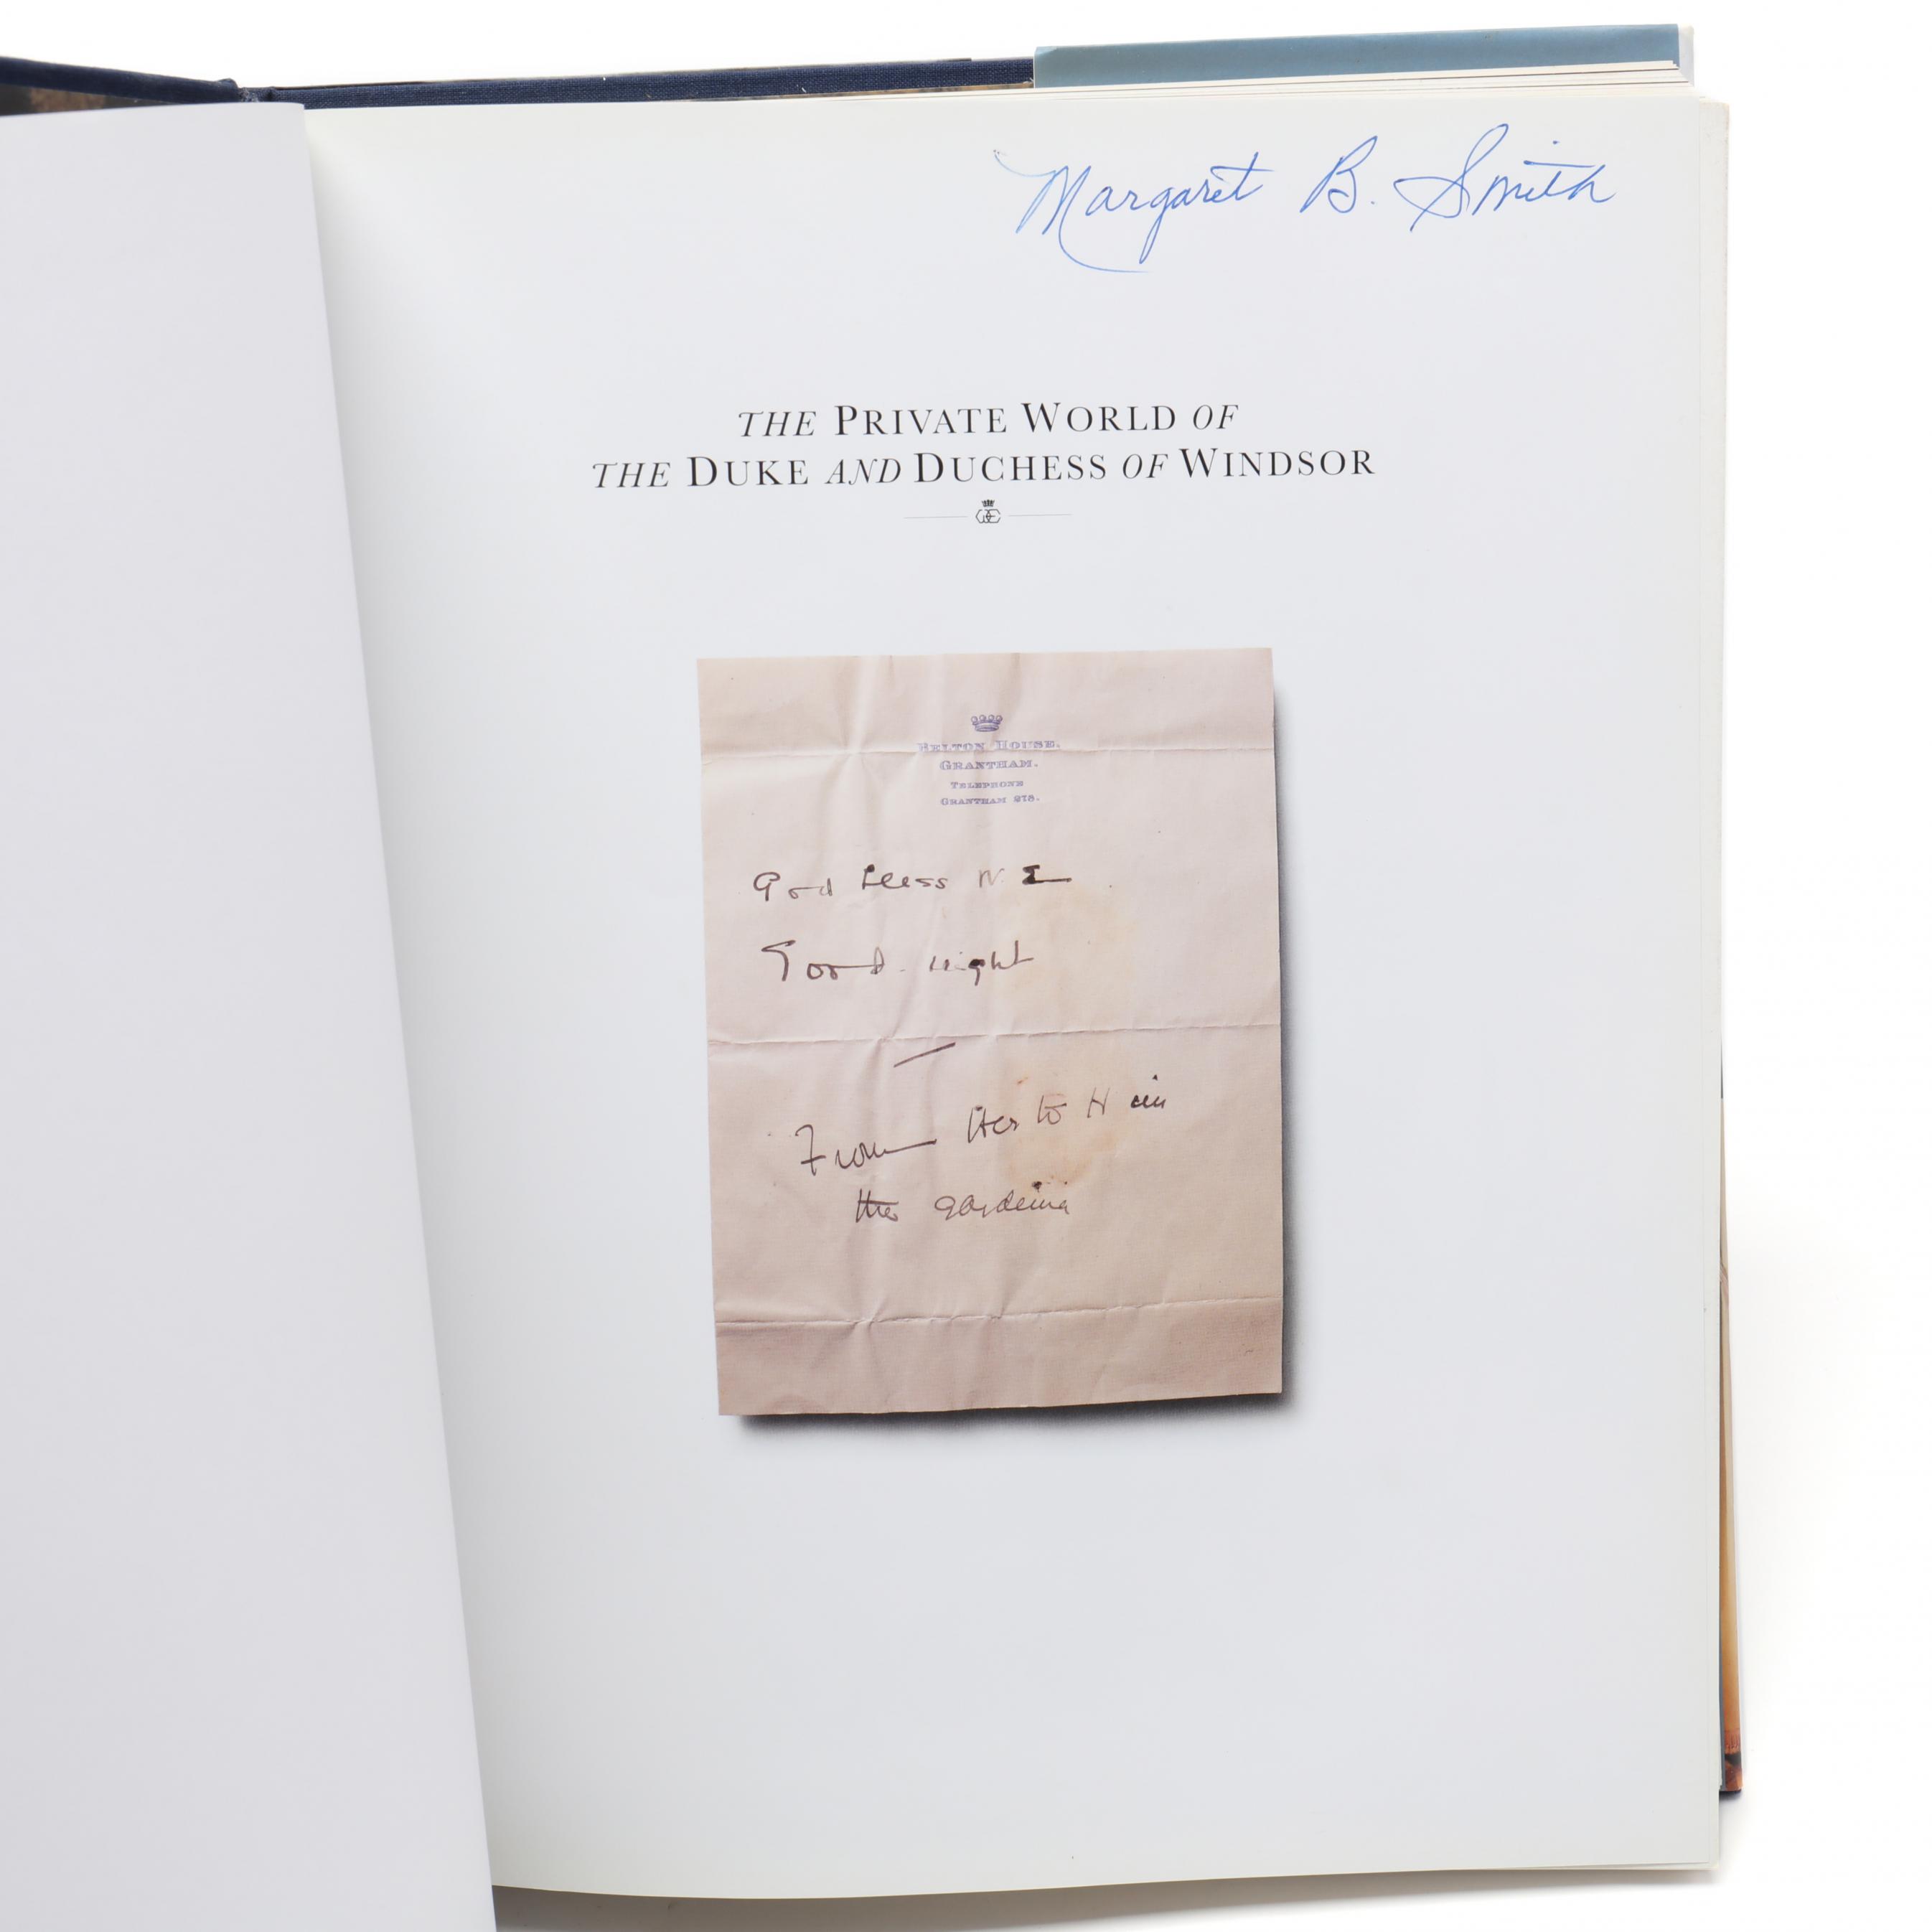 Margaret B. Smith
THE PRIVATE WORLD OF
THE DUKE AND DUCHESS OF WINDSOR
WE
BELTON HOUSE.
GRANTHAM.
TELEPHONE
GRANTHAM 275.
God bless W.E
Good. night
From Her to Him
the gardenia